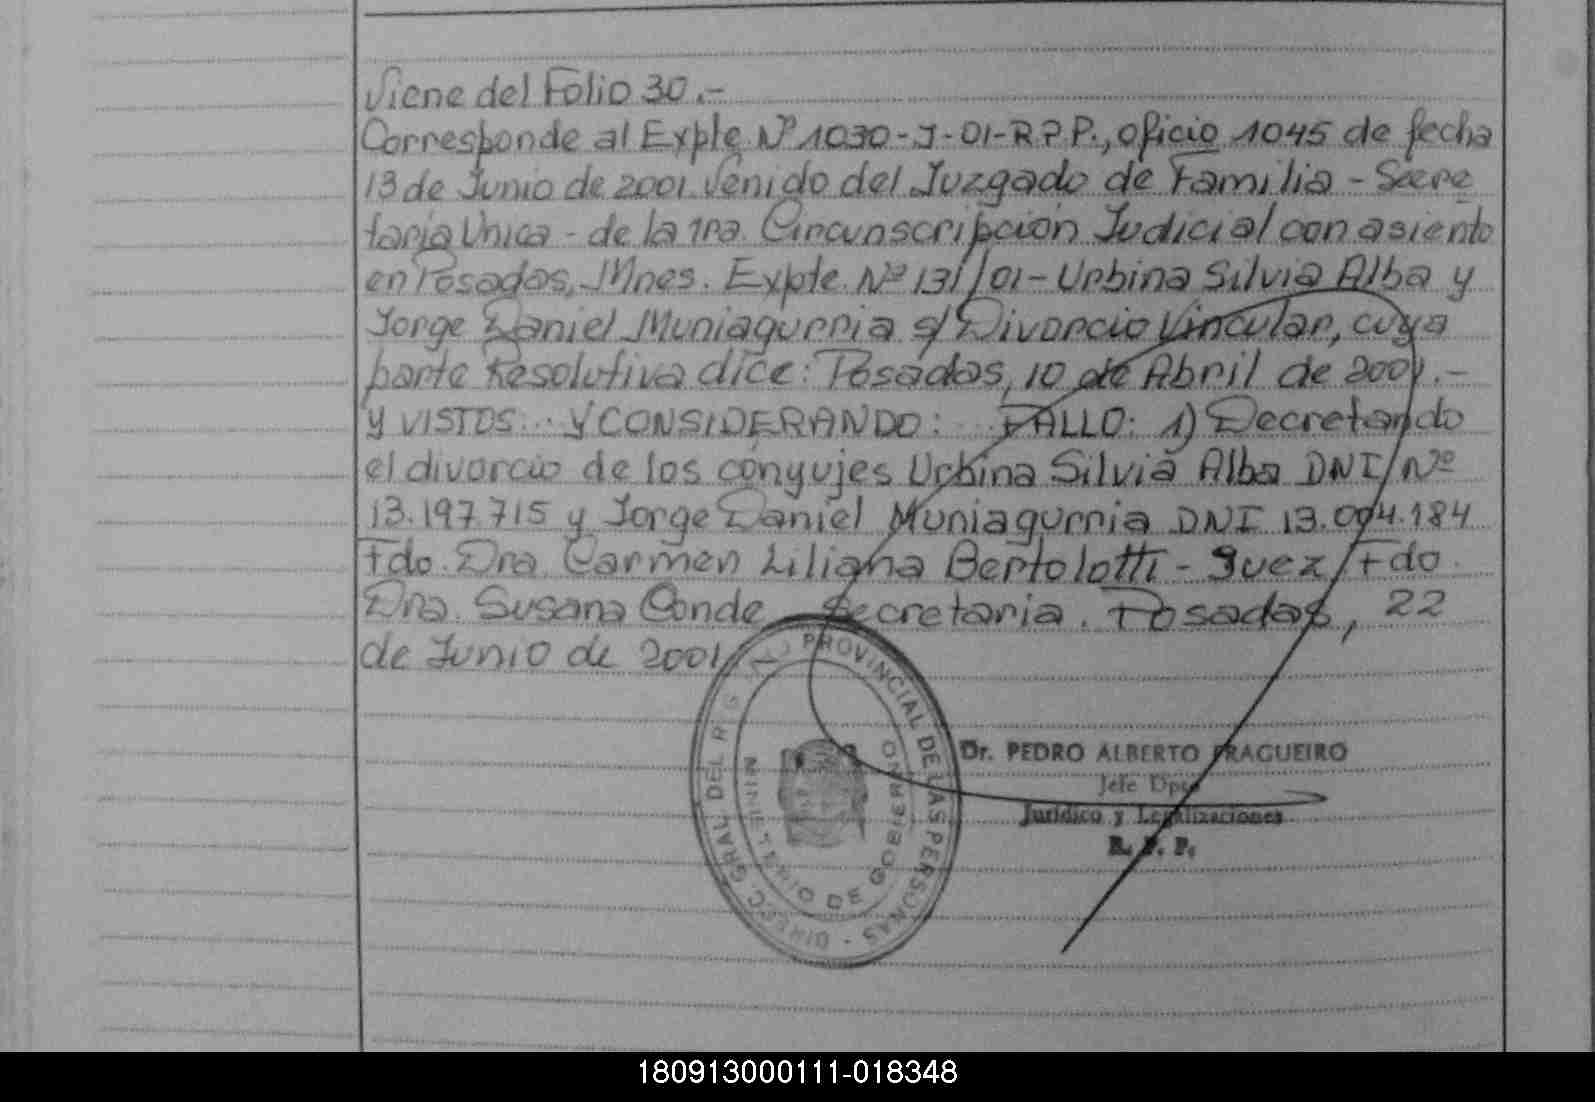 Viene del Folio 30.-
Corresponde al Expte. Nº 1030-J-01-R.P.P., oficio 1045 de fecha
13 de Junio de 2001. Venido del Juzgado de Familia - Secre
taria Unica - de la 1ra. Circunscripción Judicial con asiento
en Posadas, Mnes. Expte. Nº 131/01 - Urbina Silvia Alba y
Jorge Daniel Muniagurria s/ Divorcio Vincular, cuya
parte Resolutiva dice: Posadas, 10 de Abril de 2001.-
y VISTOS: .. Y CONSIDERANDO: .. FALLO: 1) Decretando
el divorcio de los conyujes Urbina Silvia Alba DNI Nº
13.197.715 y Jorge Daniel Muniagurria DNI 13.004.184
Fdo. Dra. Carmen Liliana Bertolotti - Juez Fdo.
Dra. Susana Conde Secretaria. Posadas, 22
de Junio de 2001.-
DIRECC. GRAL. DEL REG. PROVINCIAL DE LAS PERSONAS -
MINISTERIO DE GOBIERNO
Dr. PEDRO ALBERTO FRAGUEIRO
Jefe Dpto
Jurídico y Legalizaciones
R. P. P.
180913000111-018348